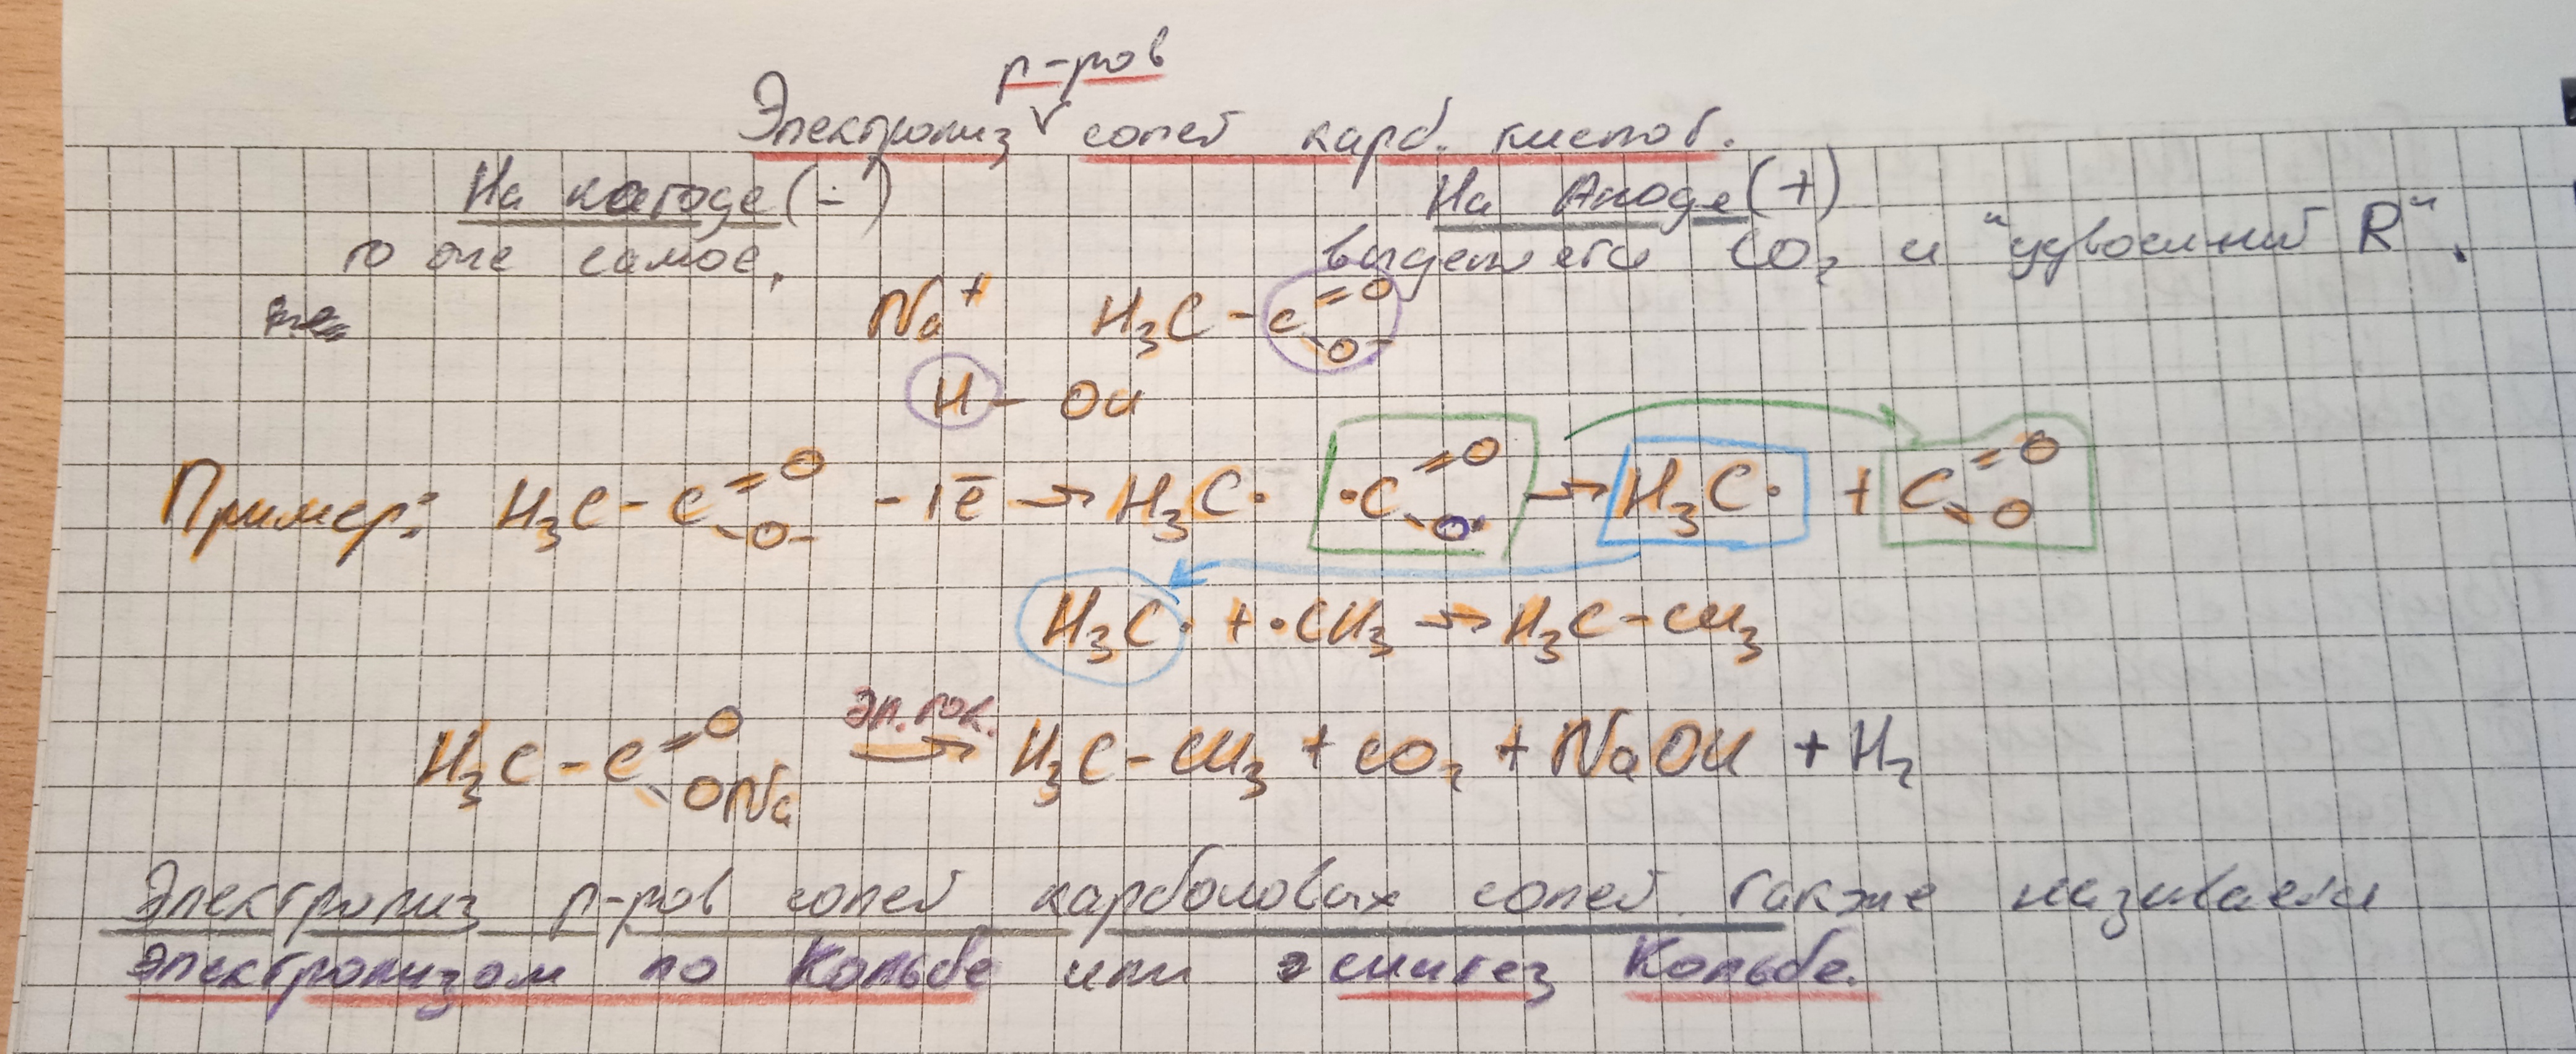 р-ров
Электролиз √ солей карб. кислот.
На катоде (-) На Аноде (+)
то же самое. выделяется CO₂ и "удвоенный R".
Na⁺ H₃C-C=O O⁻
H-OH
Пример: H₃C-C=O O- -1ē → H₃C· ·C=O O· → H₃C· + C=O =O
H₃C· + ·CH₃ → H₃C-CH₃
эл. ток.
H₃C-C=O ONa → H₃C-CH₃ + CO₂ + NaOH + H₂
Электролиз р-ров солей карболовых солей также называется
электролизом по Кольбе или синтез Кольбе.